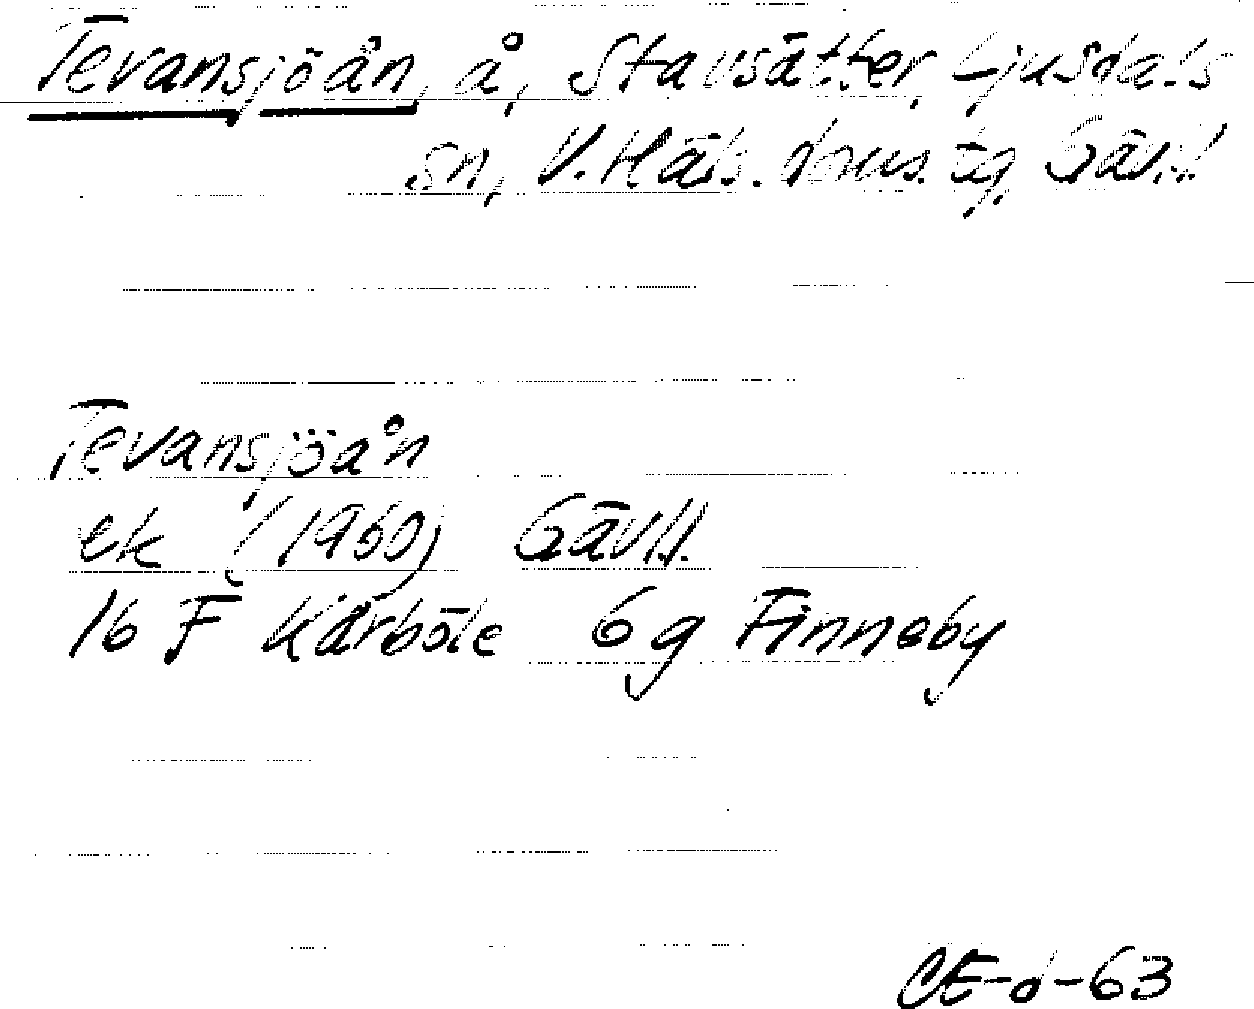 Tevansjöån, å, Stavsätter, Ljusdals
sn, V. Häls. doms. tg, Gävl.
Tevansjöån
ek (1960) Gävll.
16 F Kårböle 6g Finneby
CE-d-63